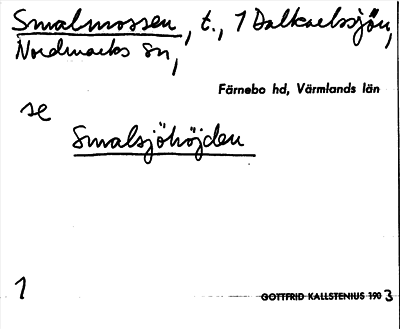 Smalmossen, t., 1 Dalkarlssjön,
Nordmarks sn,
Färnebo hd, Värmlands län
se
Smalsjöhöjden
1
GOTTFRID KALLSTENIUS 1903